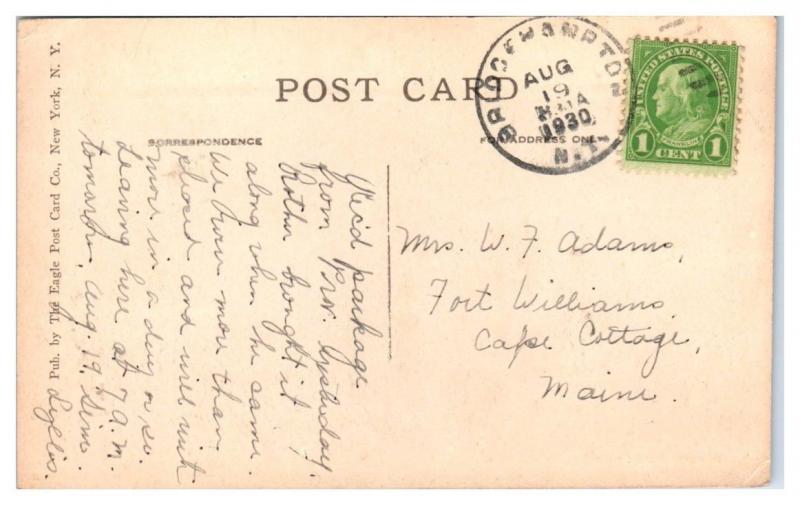 POST CARD
BROOKHAMPTON
AUG
19
1930
N.Y.
UNITED STATES POSTAGE
FRANKLIN
1 CENT 1
CORRESPONDENCE
FOR ADDRESS ONLY
Pub. by The Eagle Post Card Co., New York, N. Y.
Rec'd package
from yesterday.
brought it
along when he came.
We more than
pleased and will write
more in a day or so.
Leaving here at 7 A.M.
tomorrow, Aug. 19th
Mrs. W. F. Adams,
Fort Williams,
Cape Cottage,
Maine.